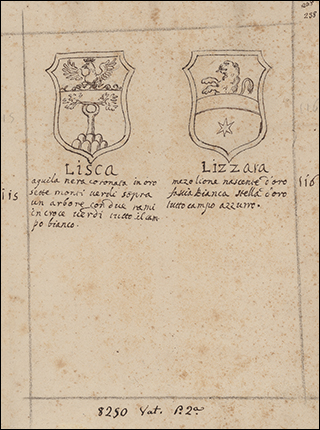 235
Lisca
aquila nera coronata in oro
sette monti verdi sopra
un arbore con due rami
in croce verdi tutto il cam
po bianco.
115
Lizzara
mezo lione nascente d'oro
fascia bianca stella d'oro
tutto campo azzurro.
116
8250 Vat. P. 2ª